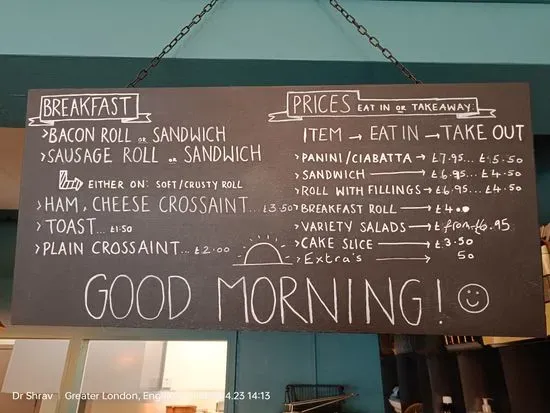 BREAKFAST
>BACON ROLL OR SANDWICH
>SAUSAGE ROLL OR SANDWICH
EITHER ON: SOFT/CRUSTY ROLL
>HAM, CHEESE CROSSAINT... £3.50
>TOAST... £1.50
>PLAIN CROSSAINT... £2.00
PRICES EAT IN OR TAKEAWAY:
ITEM → EAT IN → TAKE OUT
>PANINI/CIABATTA → £7.95... £5.50
>SANDWICH → £6.95... £4.50
>ROLL WITH FILLINGS → £6.95... £4.50
>BREAKFAST ROLL → £4.
>VARIETY SALADS → £from £6.95
>CAKE SLICE → £3.50
>Extra's → 50
GOOD MORNING! ☺
Dr Shrav Greater London, Engl 4.23 14:13